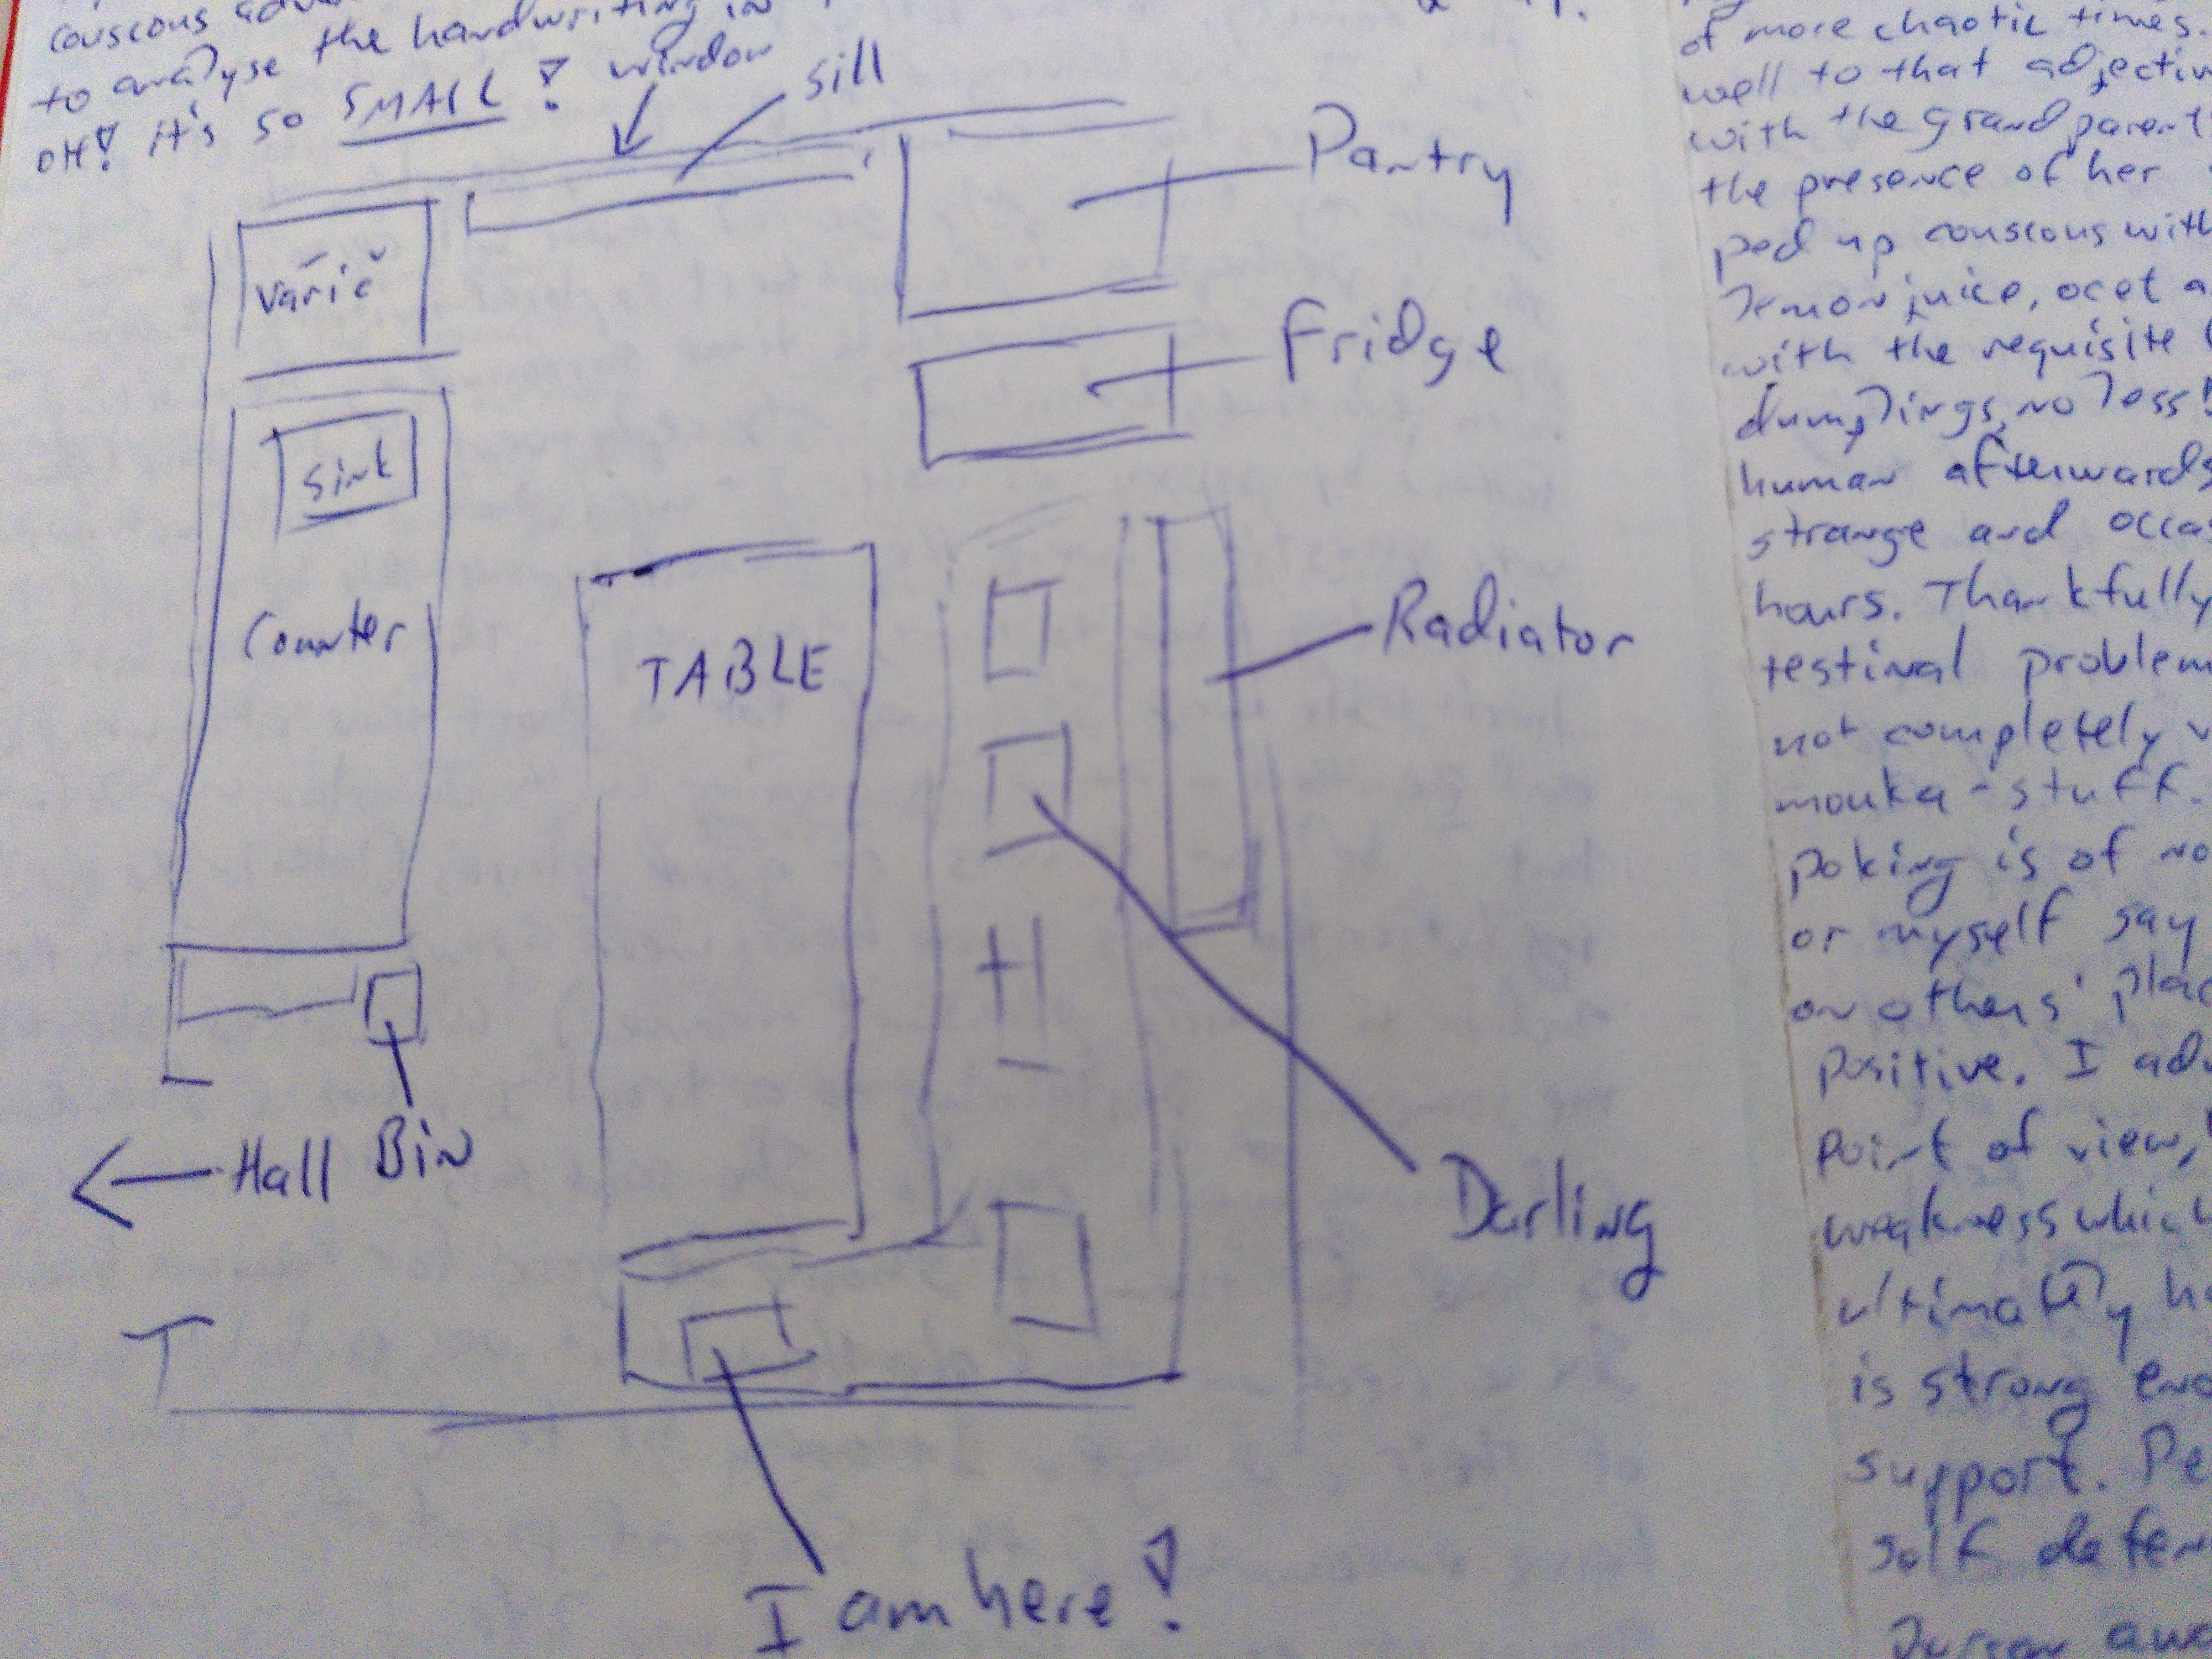 couscous
to analyse the handwriting in
OH! it's so SMALL! window
sill
Pantry
vařič
Fridge
sink
Counter
TABLE
Radiator
Bin
← Hall
Darling
I am here!
of more chaotic times.
well to that adjectiv
with the grandparent
the presence of her
ped up couscous with
lemon juice, ocet a
with the requisite
dumplings, no less!
human afterwards
strange and occa
hours. Thankfully
testinal problem
not completely
mouka-stuff.
poking is of no
or myself say
on others' plac
positive. I ad
point of view,
weakness which
ultimately ha
is strong eno
support. Pe
self defen